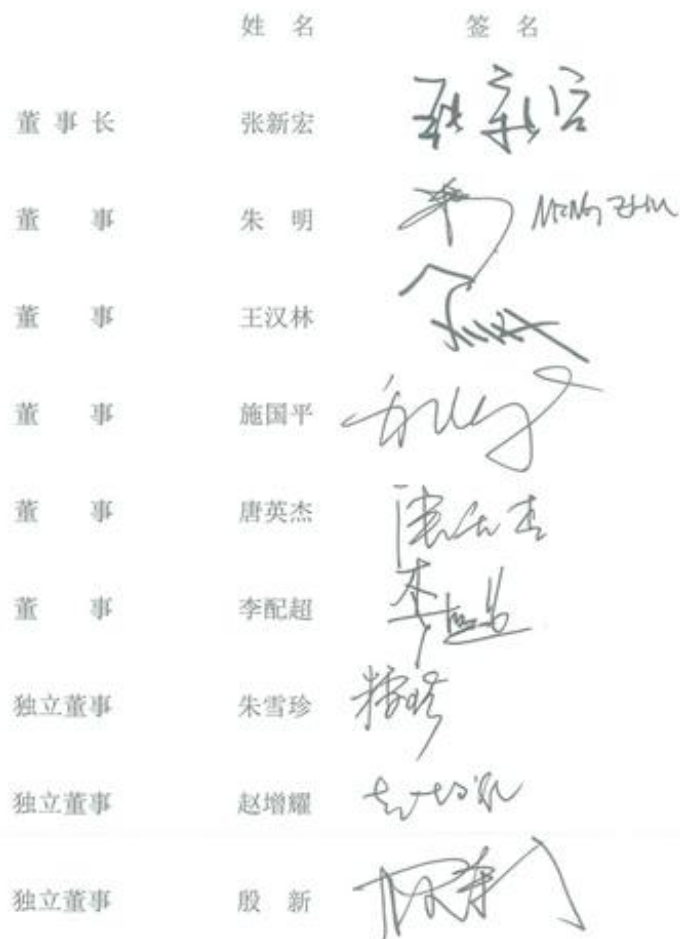 姓 名 签 名
董 事 长 张新宏 张新宏
董 事 朱 明 Ming Zhu
董 事 王汉林
董 事 施国平
董 事 唐英杰 唐英杰
董 事 李配超 李配超
独立董事 朱雪珍
独立董事 赵增耀
独立董事 殷 新